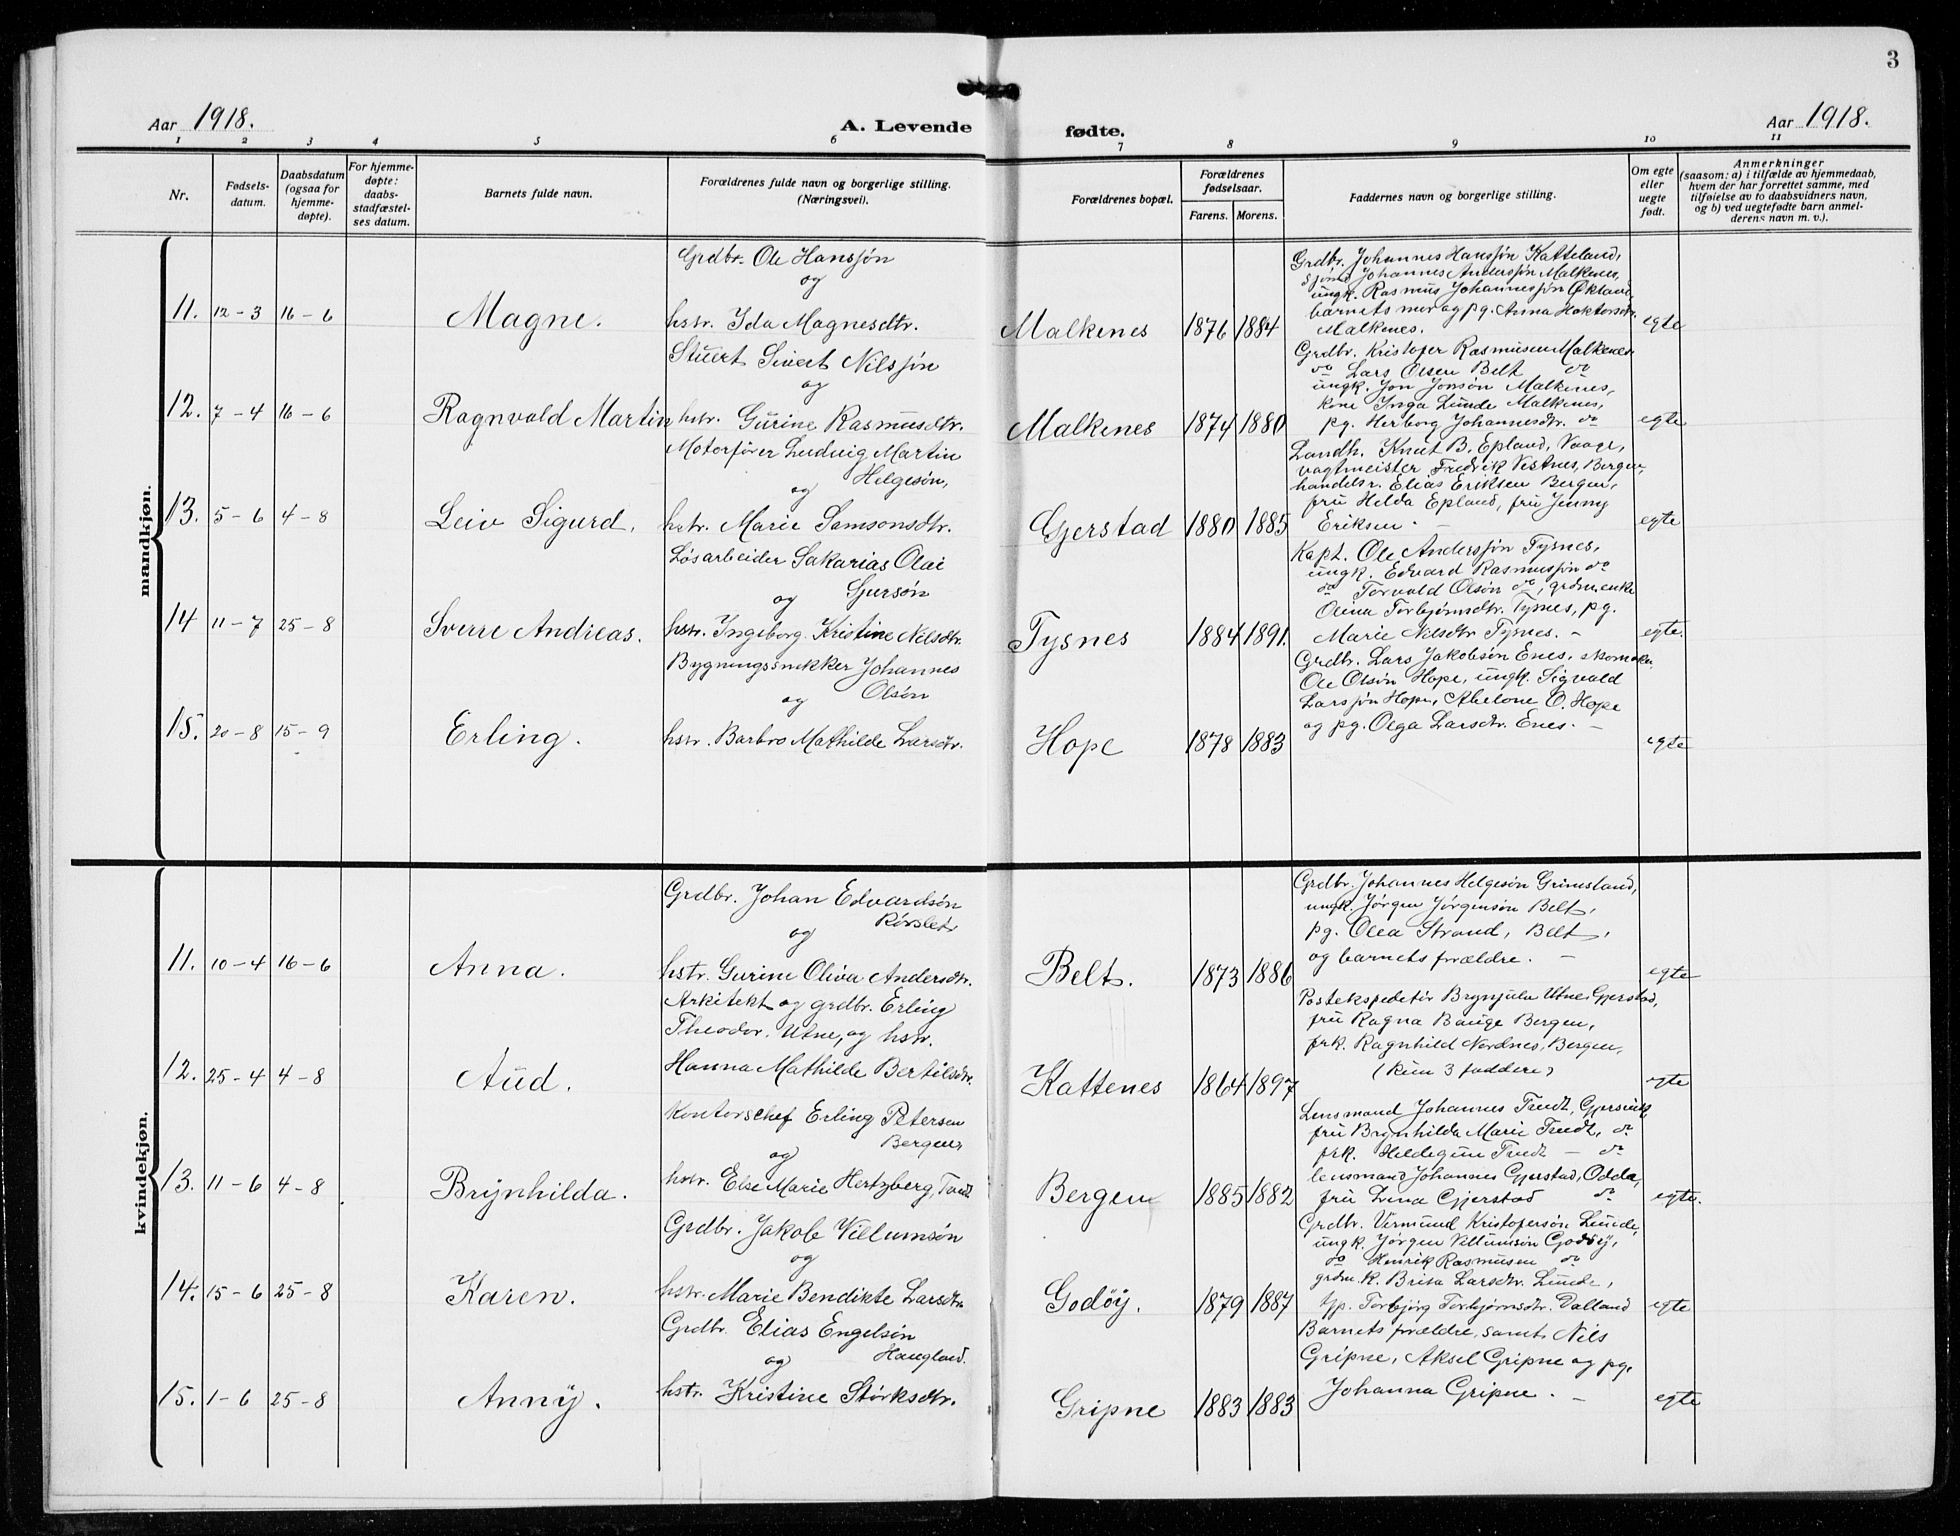 3
Aar 1918.
A. Levende fødte.
Aar 1918.
1 2 3 4 5 6 7 8 9 10 11
Nr.
Fødsels-
datum.
Daabsdatum
(ogsaa for
hjemme-
døpte).
For hjemme-
døpte:
daabs-
stadfæstel-
ses datum.
Barnets fulde navn.
Forældrenes fulde navn og borgerlige stilling.
(Næringsvei).
Forældrenes bopæl.
Forældrenes
fødselsaar.
Farens. Morens.
Faddernes navn og borgerlige stilling.
Om egte
eller
uegte
født.
Anmerkninger
(saasom: a) i tilfælde av hjemmedaab,
hvem der har forrettet samme, med
tilføielse av to daabsvidners navn,
og b) ved uegtefødte barn anmel-
derens navn m. v.).
mandkjøn.
11. 12-3 16-6
Magne.
Grdbr. Ole Hansjøn
og
hstr. Ida Magnesdtr.
Malkenes 1876 1884
Grdbr. Johannes Hansjøn Katteland,
Johannes Andersjøn Malkenes,
ungk. Rasmus Johannesjøn
barnets mor og pg. Anna
Malkenes.
egte
12. 7-4 16-6
Ragnvald Martin
Stuert Sivert Nilsjøn
og
hstr. Gurine Rasmusdtr.
Malkenes 1874 1880
Grdbr. Kristofer Rasmusen Malkenes
do Lars Olsen Belt do
ungk. Jon Jonsøn Malkenes,
kone Inga Lunde Malkenes,
pg. Herborg Johannesdtr. do
egte
13. 5-6 4-8
Leiv Sigurd.
Motorfører Ludvig Martin
Helgesøn,
og
hstr. Marie Samsonsdtr.
Gjerstad 1880 1885
Landh. Knut B. Epland, Vaage,
vagtmeister Fredrik Vestnes, Bergen,
handelsr. Elias Eriksen Bergen,
fru Helda Epland, fru Jenny
Eriksen. -
egte
14 11-7 25-8
Sverre Andreas.
Løsarbeider Sakarias Olai
Gjursøn
og
hstr. Ingeborg Kristine Nilsdtr.
Tysnes 1884 1891.
Kapt. Ole Andersjøn Tysnes,
ungk. Edvard Rasmusjøn do
do Torvald Olsøn do, grdm.enke
Olina Torbjørnsdtr. Tysnes, pg.
Marie Nilsdtr Tysnes. -
egte.
15. 20-8 15-9
Erling.
Bygningssnekker Johannes
Olsøn
og
hstr. Barbro Mathilde Larsdtr.
Hope 1878 1883
Grdbr. Lars Jakobsøn Enes, skomaker
Ole Olsøn Hope, ungk. Sigvald
Larsjøn Hope, Abelone O. Hope
og pg. Olga Larsdtr. Enes. -
egte
kvindekjøn.
11. 10-4 16-6
Anna.
Grdbr. Johan Edvardsøn
Rørslet
og
hstr. Gurine Oliva Andersdtr.
Belt. 1873 1886
Grdbr. Johannes Helgesøn Grimsland,
ungk. Jørgen Jørgensøn Belt,
pg. Olea Strand, Belt,
og barnets forældre. -
egte
12. 25-4 4-8
Aud.
Arkitekt og grdbr. Erling
Theodor. Utne, og hstr.
Hanna Mathilde Bertilsdtr.
Kattenes 1864 1897
Postekspeditør Brynjulv Utne, Gjerstad,
fru Ragna Bauge Bergen,
frk. Ragnhild Nordnes, Bergen,
(Kun 3 faddere)
egte
13. 11-6 4-8
Brynhilda.
Kontorschef Erling Petersen
Bergen,
og
hstr. Else Marie Hertzberg,
Bergen 1885 1882
Lensmand Johannes
fru Brynhilda Marie do
frk. Hildegun - do
lensmand Johannes Gjerstad, Odda,
fru Lina Gjerstad do
egte.
14. 15-6 25-8
Karen.
Grdbr. Jakob Villumsøn
og
hstr. Marie Bendikte Larsdtr.
Godøy. 1879 1887
Grdbr. Vermund Kristofersøn Lunde,
ungk. Jørgen Villumsøn Godøy,
do Henrik Rasmusen do
grdm.k. Brita Larsdtr. Lunde,
tjp. Torbjørg Torbjørnsdtr. Dalland
egte
15. 1-6 25-8
Anny.
Grdbr. Elias Engelsøn
Haugland.
og
hstr. Kristine Størksdtr.
Gripne 1883 1883
Barnets forældre, samt Nils
Gripne, Aksel Gripne og pg.
Johanna Gripne. -
egte